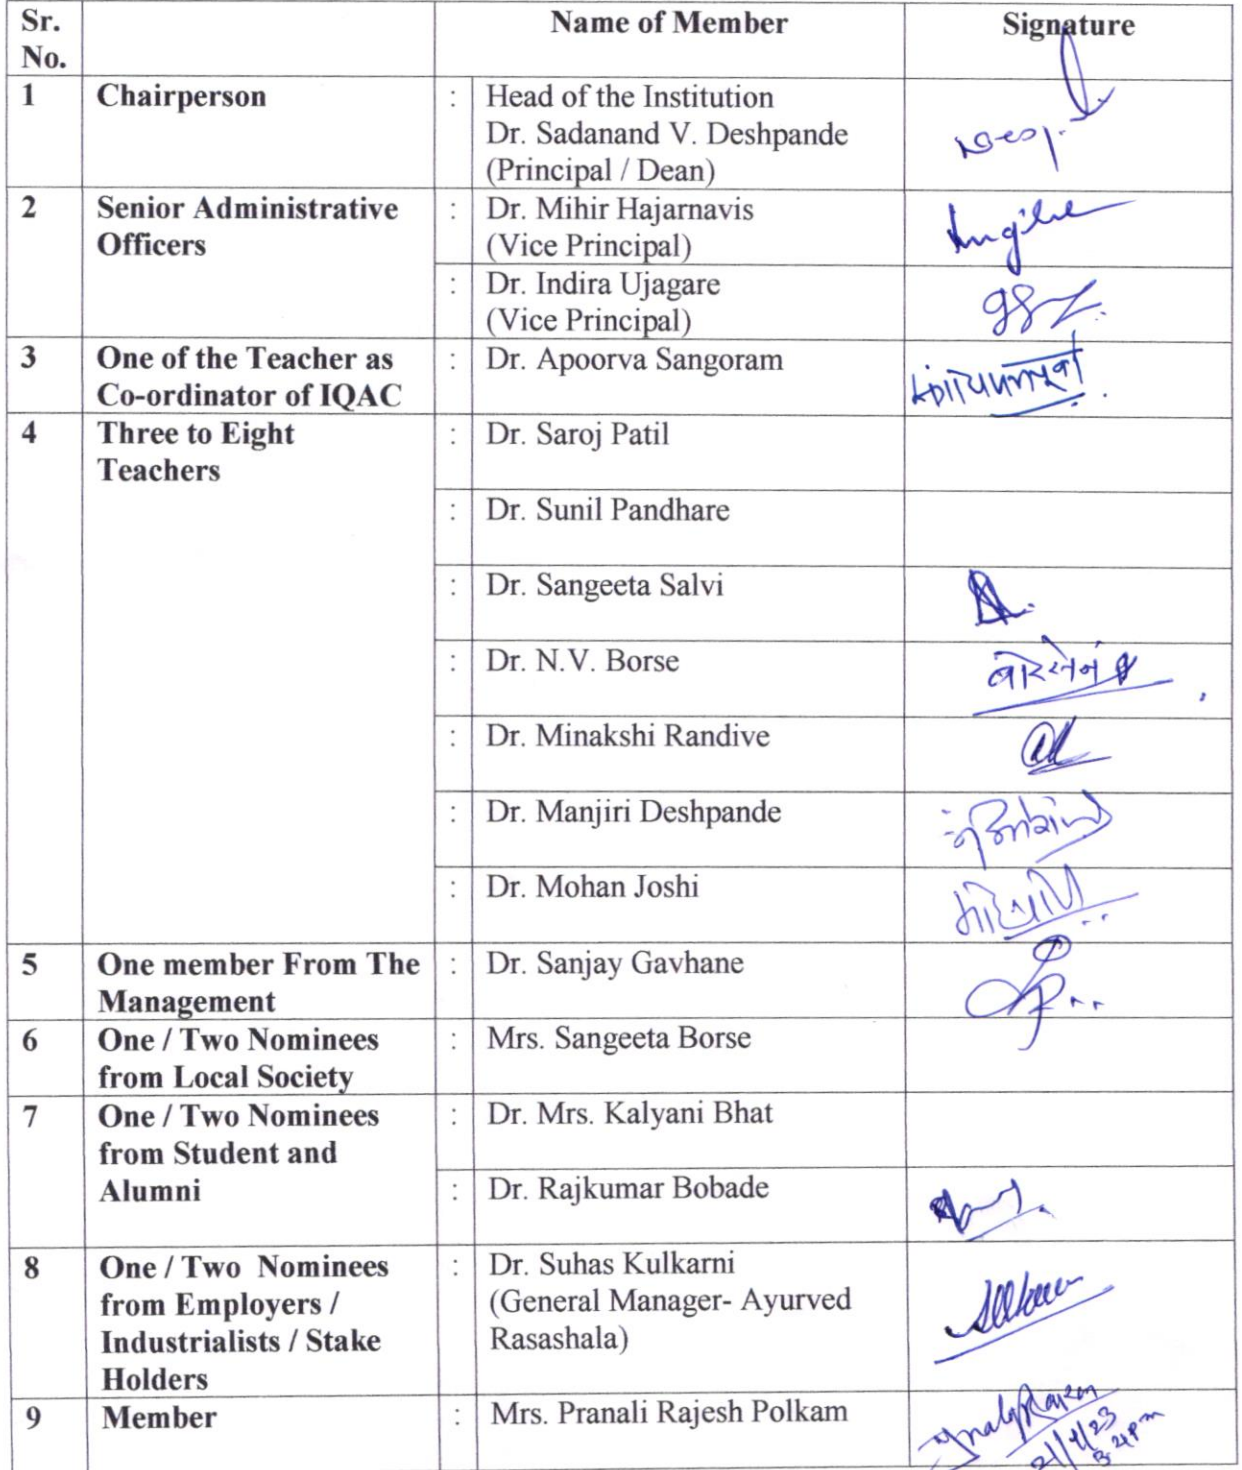 Sr. No. Name of Member Signature
1 Chairperson : Head of the Institution
Dr. Sadanand V. Deshpande
(Principal / Dean)
2 Senior Administrative Officers : Dr. Mihir Hajarnavis
(Vice Principal)
: Dr. Indira Ujagare
(Vice Principal)
3 One of the Teacher as Co-ordinator of IQAC : Dr. Apoorva Sangoram
4 Three to Eight Teachers : Dr. Saroj Patil
: Dr. Sunil Pandhare
: Dr. Sangeeta Salvi
: Dr. N.V. Borse
: Dr. Minakshi Randive
: Dr. Manjiri Deshpande
: Dr. Mohan Joshi
5 One member From The Management : Dr. Sanjay Gavhane
6 One / Two Nominees from Local Society : Mrs. Sangeeta Borse
7 One / Two Nominees from Student and Alumni : Dr. Mrs. Kalyani Bhat
: Dr. Rajkumar Bobade
8 One / Two Nominees from Employers / Industrialists / Stake Holders : Dr. Suhas Kulkarni
(General Manager- Ayurved Rasashala)
9 Member : Mrs. Pranali Rajesh Polkam